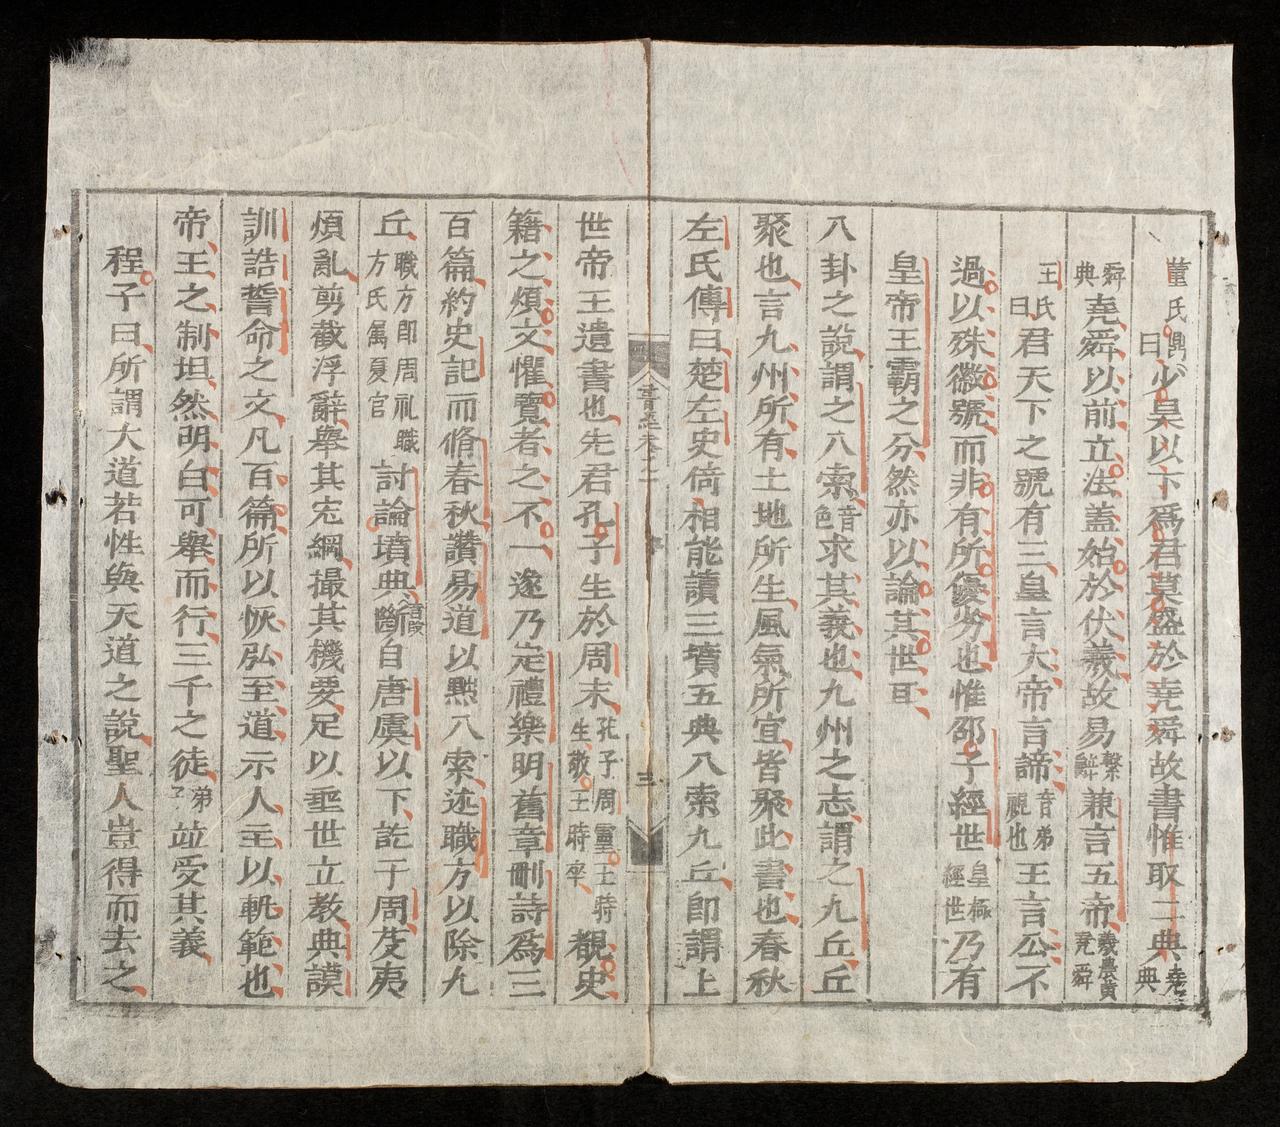 董氏鼎曰少昊以下爲君莫盛於堯舜故書惟取二典堯典
舜典堯舜以前立法蓋始於伏羲故易繫辭兼言五帝羲農黄堯舜
王氏曰君天下之號有三皇言大帝言諦音弟視也王言公不
過以殊徽號而非有所優劣也惟邵子經世皇極經世乃有
皇帝王霸之分然亦以論其世耳
八卦之說謂之八索音色求其義也九州之志謂之九丘丘
聚也言九州所有土地所生風氣所宜皆聚此書也春秋
左氏傳曰楚左史倚相能讀三墳五典八索九丘卽謂上
書經卷之一
序
三
世帝王遺書也先君孔子生於周末孔子周靈王時生敬王時卒覩史
籍之煩文懼覽者之不一遂乃定禮樂明舊章刪詩爲三
百篇約史記而脩春秋讚易道以黜八索述職方以除九
丘職方即周礼職方氏属夏官討論墳典斷自唐虞以下訖于周芟夷
煩亂剪截浮辭舉其宏綱撮其機要足以垂世立教典謨
訓誥誓命之文凡百篇所以恢弘至道示人主以軌範也
帝王之制坦然明白可舉而行三千之徒弟子並受其義
程子曰所謂大道若性與天道之說聖人豈得而去之